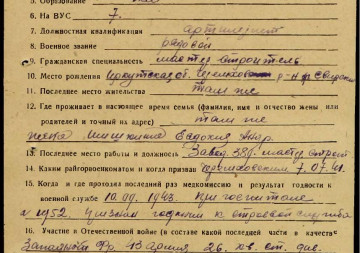 5. Образование
6. На ВУС 7.
7. Должностная квалификация артиллерист
8. Военное звание рядовой
9. Гражданская специальность мастер строитель
10. Место рождения Иркутской об. р-н
11. Последнее место жительства там же
12. Где проживает в настоящее время семья (фамилия, имя и отчество жены или
родителей и точный их адрес) там же
жена Шишкина Евдокия
13. Последнее место работы и должность Завод 389. мастер строит
14. Каким райгорвоенкоматом и когда призван Черемховским 7.07.41.
15. Когда и где проходил раз последний медкомиссию и результат годности к
военной службе 10.09.1943. при госпитале
№ 1952. признан годным к строевой службе
16. Участие в Отечественной войне (в составе какой последней части и качестве)
Западный Фр. 13 армия 26. кв. ст. див.